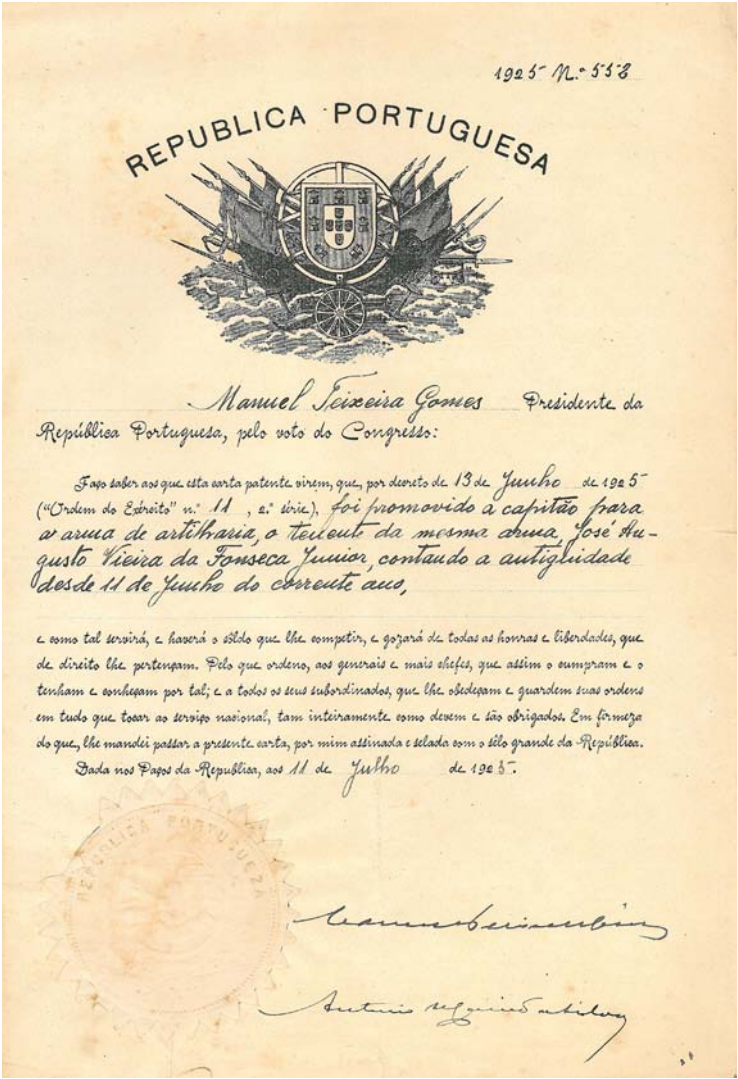 1925 N.º 552
REPUBLICA PORTUGUESA
Manuel Teixeira Gomes Presidente da
República Portuguesa, pelo voto do Congresso:
Faço saber aos que esta carta patente virem, que, por decreto de 13 de Junho de 1925
("Ordem do Exército" n.º 11, 2.ª série), foi promovido a capitão para
a arma de artilharia, o tenente da mesma arma, José Au-
gusto Vieira da Fonseca Junior, contando a antigùidade
desde 11 de Junho do corrente ano,
e como tal servirá, e haverá o sôldo que lhe competir, e gozará de todas as honras e liberdades, que
de direito lhe pertençam. Pelo que ordeno, aos generais e mais chefes, que assim o cumpram e o
tenham e conheçam por tal; e a todos os seus subordinados, que lhe obedeçam e guardem suas ordens
em tudo que tocar ao serviço nacional, tam inteiramente como devem e são obrigados. Em firmeza
do que, lhe mandei passar a presente carta, por mim assinada e selada com o sêlo grande da República.
Dada nos Paços da Republica, aos 11 de Julho de 1925.
REPUBLICA PORTUGUEZA